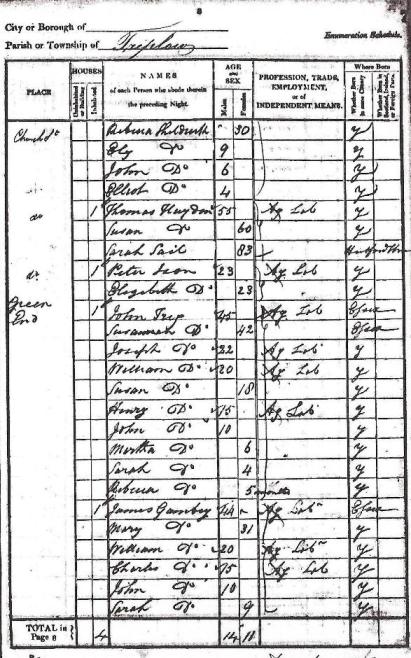 8
City or Borough of
Parish or Township of Triplow
Enumeration Schedule.
PLACE
HOUSES
Uninhabited or Building
Inhabited
NAMES of each Person who abode therein the preceding Night.
AGE and SEX
Males
Females
PROFESSION, TRADE, EMPLOYMENT, or of INDEPENDENT MEANS.
Where Born
Whether Born in same County
Whether Born in Scotland, Ireland, or Foreign Parts.
Church St Rebecca 30 y
Ely Do 9 y
John Do 6 y
Elliot Do 4 y
do 1 Thomas Haydon 55 Ag Lab y
Susan Do 60 y
Sarah Sail 83 Hertfordshire
do 1 Peter 23 Ag Lab y
Elizabeth Do 23 y
Green End 1 John Trip 45 Ag Lab Essex
Susannah Do 42 Essex
Joseph Do 22 Ag Lab y
William Do 20 Ag Lab y
Susan Do 18 y
Henry Do 15 Ag Lab y
John Do 10 y
Martha Do 6 y
Sarah Do 4 y
Rebecca Do 5 months y
1 James Gamboy 44 Ag Lab Essex
Mary Do 31 y
William Do 20 Ag Lab y
Charles Do 15 Ag Lab y
John Do 10 y
Sarah Do 9 y
TOTAL in Page 8 4 14 11